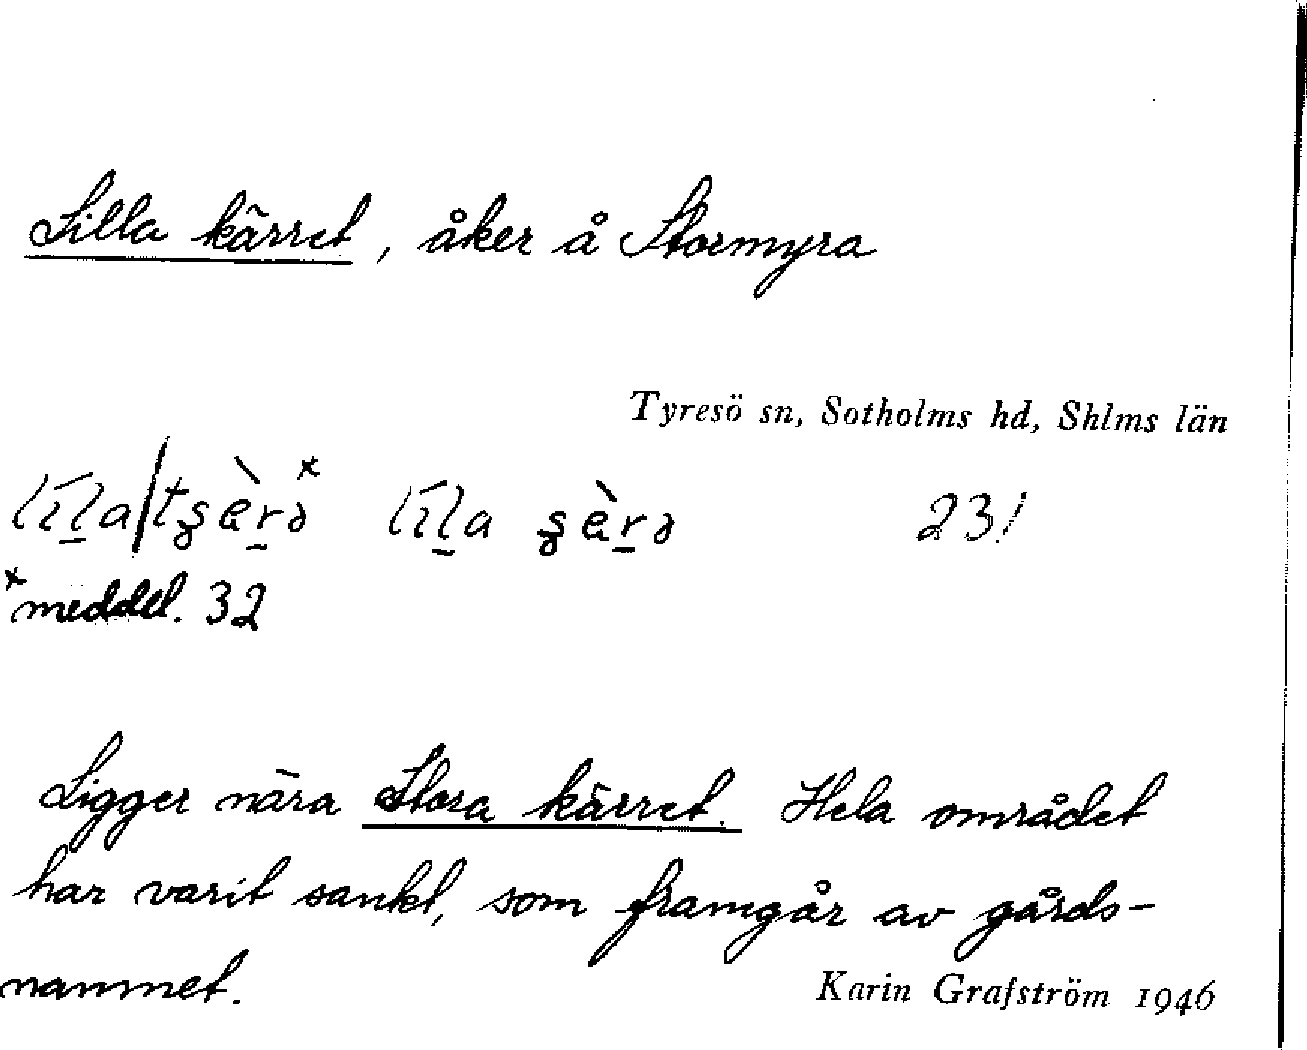 Lilla kärret, åker å Stormyra
Tyresö sn, Sotholms hd, Shlms län
23!
×meddel. 32
Ligger nära Stora kärret. Hela området
har varit sankt, som framgår av gårds-
namnet.
Karin Grafström 1946